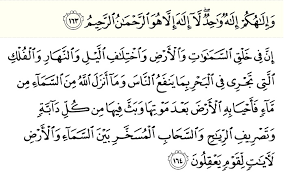 وَإِلَٰهُكُمْ إِلَٰهٌ وَٰحِدٌ لَّآ إِلَٰهَ إِلَّا هُوَ ٱلرَّحْمَٰنُ ٱلرَّحِيمُ ١٦٣
إِنَّ فِى خَلْقِ ٱلسَّمَٰوَٰتِ وَٱلْأَرْضِ وَٱخْتِلَٰفِ ٱلَّيْلِ وَٱلنَّهَارِ وَٱلْفُلْكِ
ٱلَّتِى تَجْرِى فِى ٱلْبَحْرِ بِمَا يَنفَعُ ٱلنَّاسَ وَمَآ أَنزَلَ ٱللَّهُ مِنَ ٱلسَّمَآءِ مِن
مَّآءٍ فَأَحْيَا بِهِ ٱلْأَرْضَ بَعْدَ مَوْتِهَا وَبَثَّ فِيهَا مِن كُلِّ دَآبَّةٍ
وَتَصْرِيفِ ٱلرِّيَٰحِ وَٱلسَّحَابِ ٱلْمُسَخَّرِ بَيْنَ ٱلسَّمَآءِ وَٱلْأَرْضِ
لَـَٔايَٰتٍ لِّقَوْمٍ يَعْقِلُونَ ١٦٤